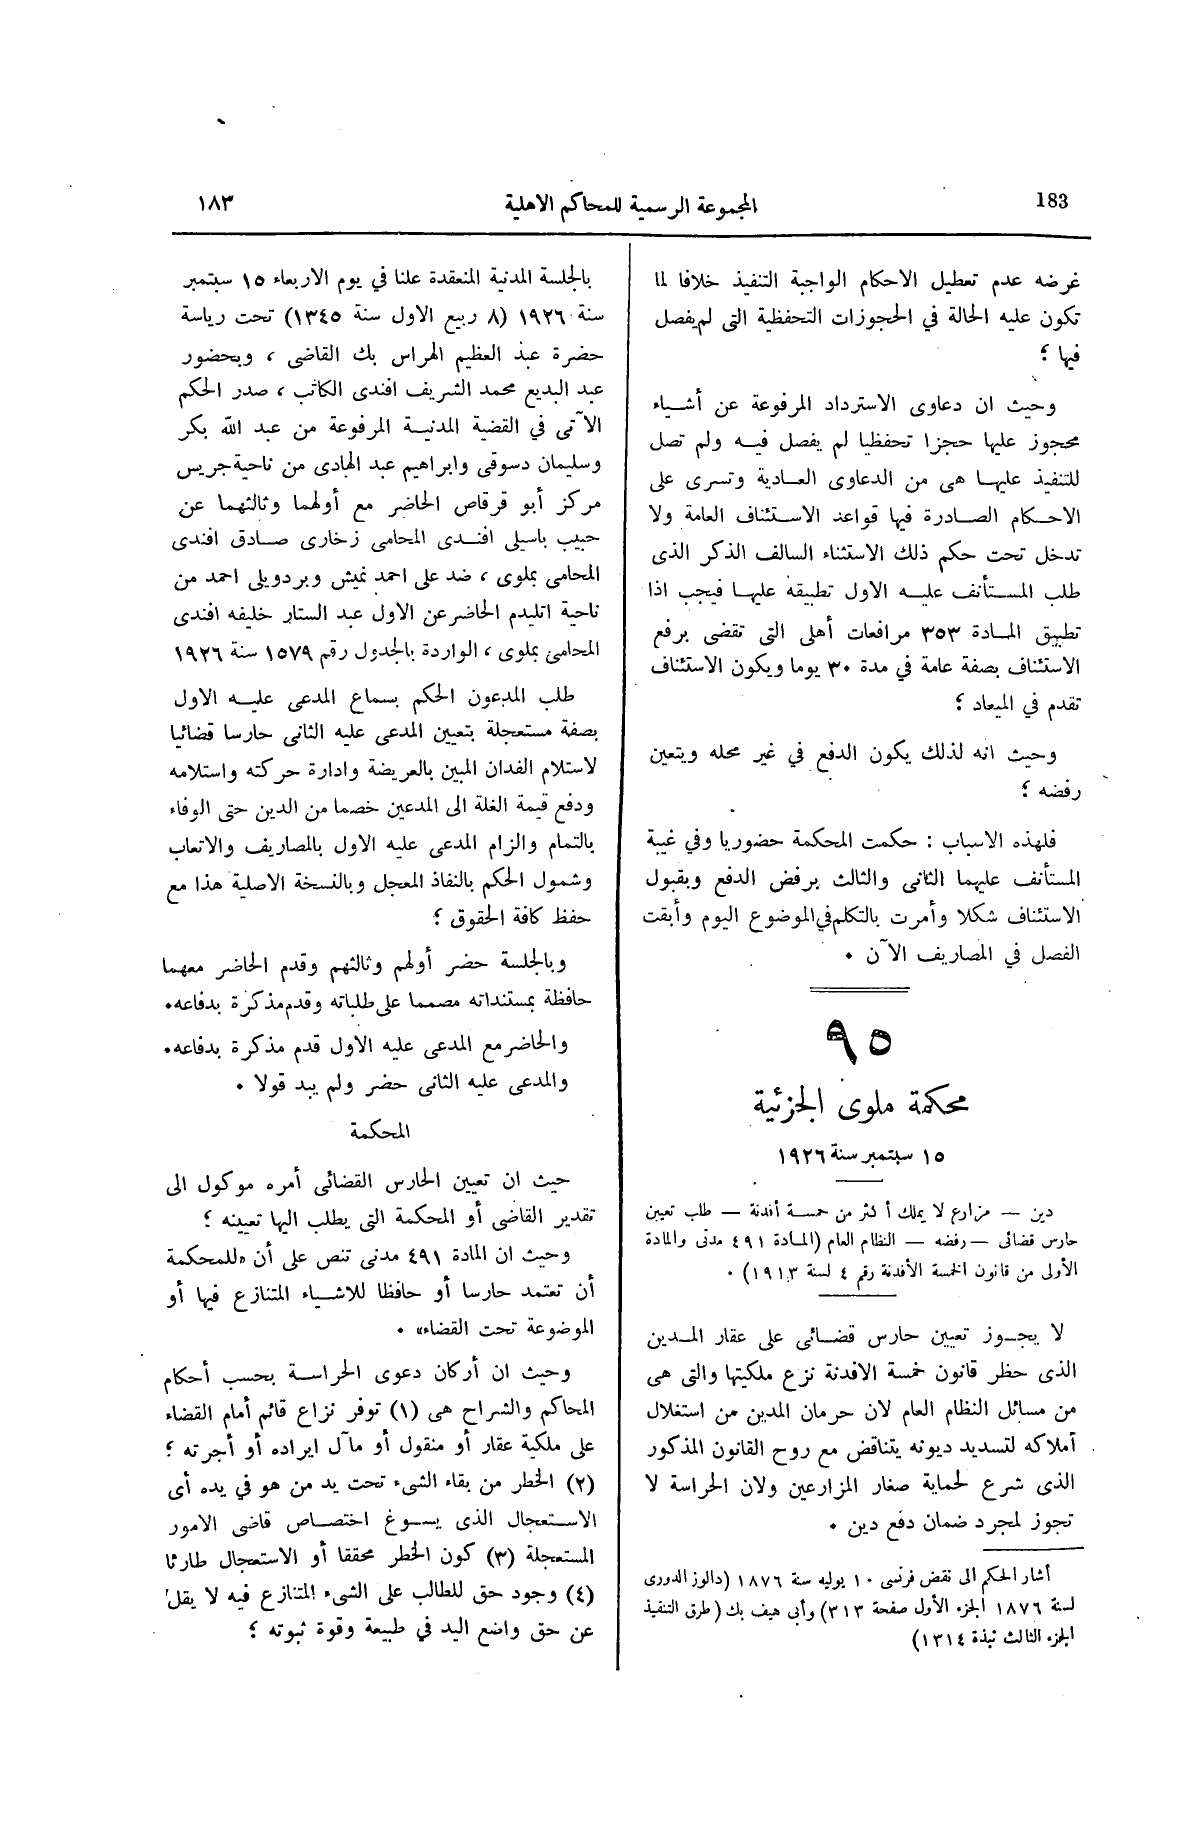 183
المجموعة الرسمية للمحاكم الاهلية
١٨٣
غرضه عدم تعطيل الاحكام الواجبة التنفيذ خلافا لما
تكون عليه الحالة في الحجوزات التحفظية التى لم يفصل
فيها ؛
وحيث ان دعاوى الاسترداد المرفوعة عن أشياء
محجوز عليها حجزا تحفظيا لم يفصل فيه ولم تصل
للتنفيذ عليها هى من الدعاوى العادية وتسرى على
الاحكام الصادرة فيها قواعد الاستئناف العامة ولا
تدخل تحت حكم ذلك الاستثناء السالف الذكر الذى
طلب المستأنف عليه الاول تطبيقه عليها فيجب اذا
تطبيق المادة ٣٥٣ مرافعات أهلى التى تقضى برفع
الاستئناف بصفة عامة في مدة ٣٠ يوما ويكون الاستئناف
تقدم في الميعاد ؛
وحيث انه لذلك يكون الدفع في غير محله ويتعين
رفضه ؛
فلهذه الاسباب : حكمت المحكمة حضوريا وفي غيبة
المستأنف عليهما الثانى والثالث برفض الدفع وبقبول
الاستئناف شكلا وأمرت بالتكلم في الموضوع اليوم وأبقت
الفصل في المصاريف الآن .
٩٥
محكمة ملوى الجزئية
١٥ سبتمبر سنة ١٩٢٦
دين — مزارع لا يملك أكثر من خمسة أفدنة — طلب تعيين
حارس قضائى — رفضه — النظام العام (المادة ٤٩١ مدنى والمادة
الأولى من قانون الخمسة الأفدنة رقم ٤ لسنة ١٩١٣) .
لا يجوز تعيين حارس قضائى على عقار المدين
الذى حظر قانون خمسة الافدنة نزع ملكيتها والتى هى
من مسائل النظام العام لان حرمان المدين من استغلال
أملاكه لتسديد ديونه يتناقض مع روح القانون المذكور
الذى شرع لحماية صغار المزارعين ولان الحراسة لا
تجوز لمجرد ضمان دفع دين .
أشار الحكم الى نقض فرنسى ١٠ يوليه سنة ١٨٧٦ (دالوز الدورى
لسنة ١٨٧٦ الجزء الأول صفحة ٣١٣) وأبى هيف بك (طرق التنفيذ
الجزء الثالث نبذة ١٣١٤)
بالجلسة المدنية المنعقدة علنا في يوم الاربعاء ١٥ سبتمبر
سنة ١٩٢٦ (٨ ربيع الاول سنة ١٣٤٥) تحت رياسة
حضرة عبد العظيم الهراس بك القاضى ، وبحضور
عبد البديع محمد الشريف افندى الكاتب ، صدر الحكم
الآتى في القضية المدنية المرفوعة من عبد الله بكر
وسليمان دسوقى وابراهيم عبد الهادى من ناحية جريس
مركز أبو قرقاص الحاضر مع أولهما وثالثهما عن
حبيب باسيلى افندى المحامى زخارى صادق افندى
المحامى بملوى ، ضد على احمد نميش وبردويلى احمد من
ناحية اتليدم الحاضر عن الاول عبد الستار خليفه افندى
المحامى بملوى ، الواردة بالجدول رقم ١٥٧٩ سنة ١٩٢٦
طلب المدعون الحكم بسماع المدعى عليه الاول
بصفة مستعجلة بتعيين المدعى عليه الثانى حارسا قضائيا
لاستلام الفدان المبين بالعريضة وادارة حركته واستلامه
ودفع قيمة الغلة الى المدعين خصما من الدين حتى الوفاء
بالتمام والزام المدعى عليه الاول بالمصاريف والاتعاب
وشمول الحكم بالنفاذ المعجل وبالنسخة الاصلية هذا مع
حفظ كافة الحقوق ؛
وبالجلسة حضر أولهم وثالثهم وقدم الحاضر معهما
حافظة بمستنداته مصمما على طلباته وقدم مذكرة بدفاعه .
والحاضر مع المدعى عليه الاول قدم مذكرة بدفاعه .
والمدعى عليه الثانى حضر ولم يبد قولا .
المحكمة
حيث ان تعيين الحارس القضائى أمره موكول الى
تقدير القاضى أو المحكمة التى يطلب اليها تعيينه ؛
وحيث ان المادة ٤٩١ مدنى تنص على أن «للمحكمة
أن تعتمد حارسا أو حافظا للاشياء المتنازع فيها أو
الموضوعة تحت القضاء» .
وحيث ان أركان دعوى الحراسة بحسب أحكام
المحاكم والشراح هى (١) توفر نزاع قائم أمام القضاء
على ملكية عقار أو منقول أو مآل ايراده أو أجرته ؛
(٢) الخطر من بقاء الشىء تحت يد من هو في يده أى
الاستعجال الذى يسوغ اختصاص قاضى الامور
المستعجلة (٣) كون الخطر محققا أو الاستعجال طارئا
(٤) وجود حق للطالب على الشىء المتنازع فيه لا يقل
عن حق واضع اليد في طبيعة وقوة ثبوته ؛